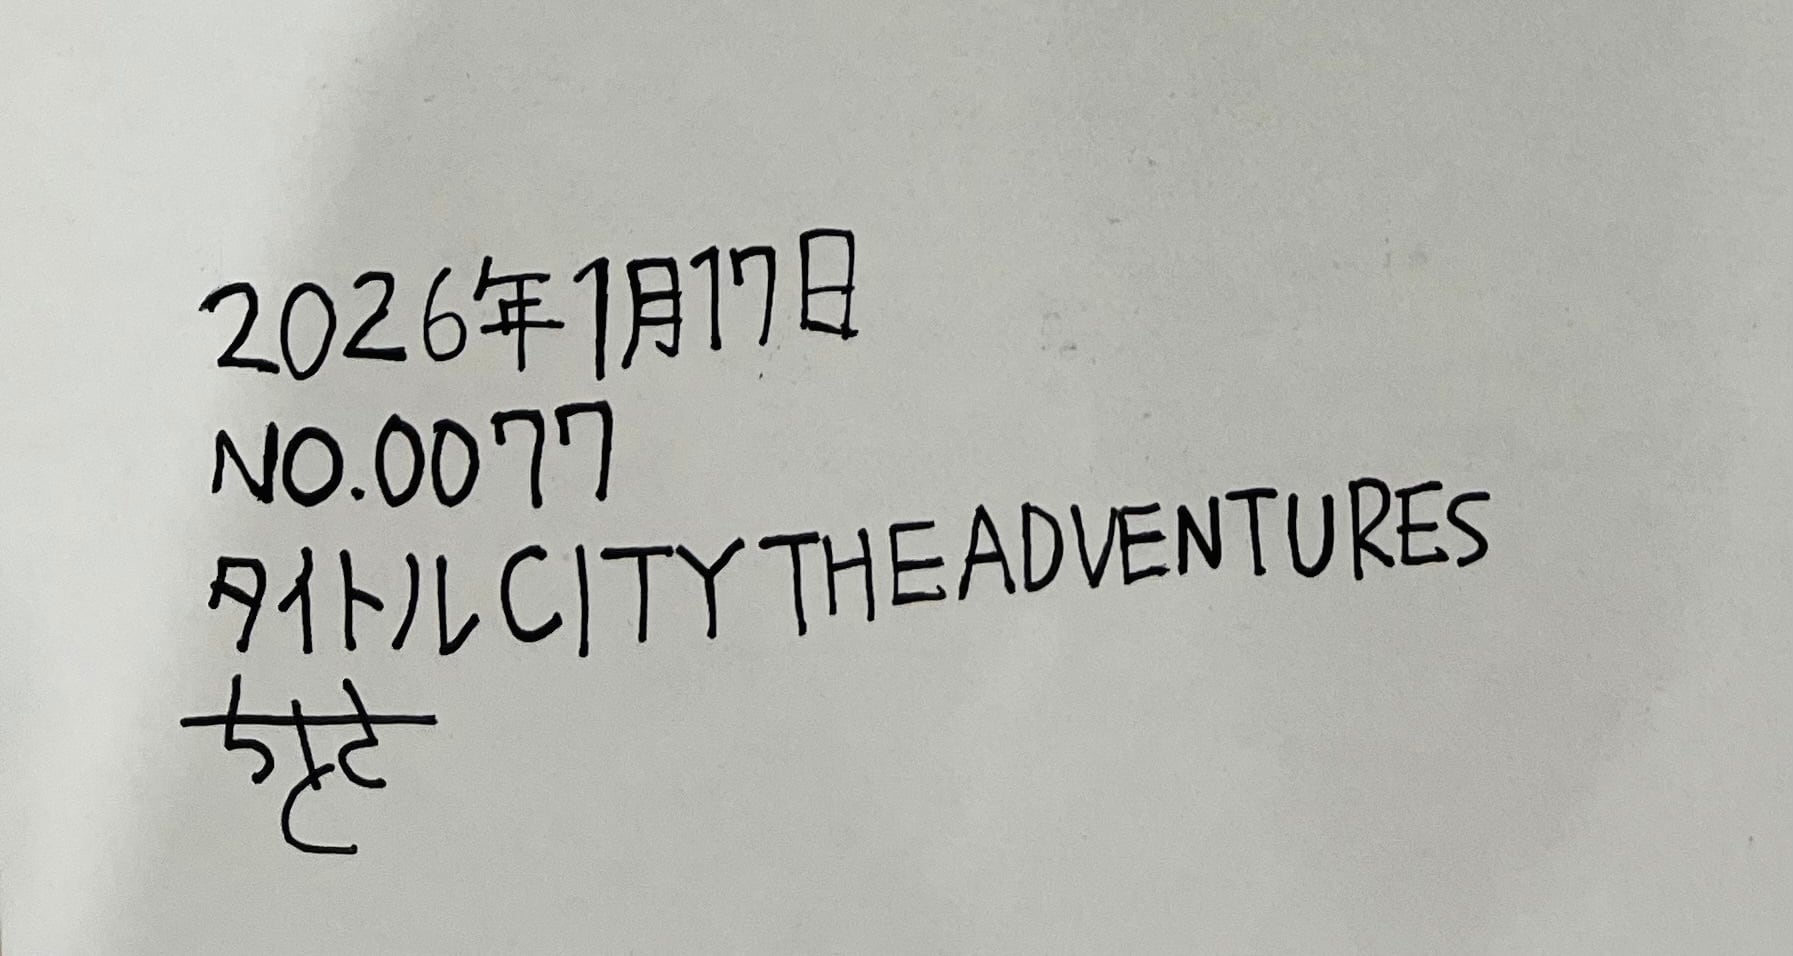 2026年1月17日
NO.0077
タイトルCITY THE ADVENTURES